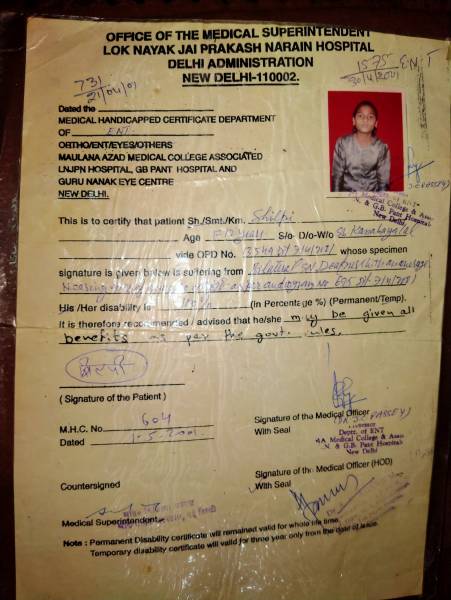 OFFICE OF THE MEDICAL SUPERINTENDENT
LOK NAYAK JAI PRAKASH NARAIN HOSPITAL
DELHI ADMINISTRATION
NEW DELHI-110002.
1575 ENT
30/4/2001
731
21/04/01
Dated the
MEDICAL HANDICAPPED CERTIFICATE DEPARTMENT
OF ENT
ORTHO/ENT/EYES/OTHERS
MAULANA AZAD MEDICAL COLLEGE ASSOCIATED
LNJPN HOSPITAL, GB PANT HOSPITAL AND
GURU NANAK EYE CENTRE
NEW DELHI.
of ENT
Medical College & Asso.
N. & G.B. Pant Hospitals
New Delhi
This is to certify that patient Sh./Smt./Km. Shilpi
Age F 12 years S/o D/o-W/o Sh.
vide OPD No. whose specimen
signature is given below is suffering from Bilateral
His /Her disability is (In Percentage %) (Permanent/Temp).
It is therefore recommended / advised that he/she may be given all
benefits as per the govt. rules.
शिल्पी
( Signature of the Patient )
M.H.C. No. 604
Dated 1.5.2001
Signature of the Medical Officer
With Seal
Deptt. of ENT
MA Medical College & Asso.
N. & G.B. Pant Hospitals
New Delhi
Signature of the Medical Officer (HOD)
With Seal
Countersigned
Medical Superintendent
Note : Permanent Disability certificate will remained valid for whole life time.
Temporary disability certificate will valid for three year only from the date of issue.